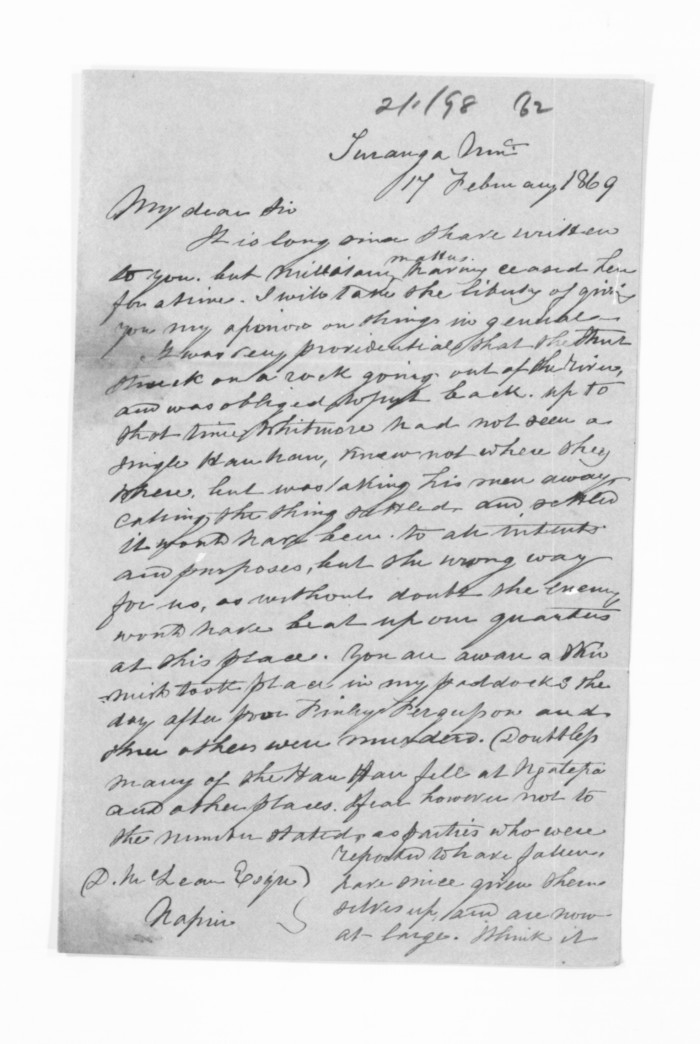 21/98 62
Turanga
17 February 1869
My dear Sir
It is long since I have written
to you. but Military matters. having ceased here
for a time. I will take the liberty of giving
you my opinion on things in general
It was very providential that the Sturt
struck on a rock going out of the River,
and was obliged to put back. up to
that time, Whitmore had not seen a
single Hau hau, knew not where they
where. but was taking his men away
calling the thing settled, and settled
it would have been. to all intents
and purposes, but the wrong way
for us, as without doubt the enemy
would have beat up our quarters
at this place. You are aware a skir
mish took place in my paddocks the
day after poor Finlay Fergusson and
three others were murdered. Doubtless
many of the Hau Hau fell at Ngatapa
and other places. I fear however not to
the number stated, as parties who were
reported to have fallen,
have since given them
selves up, and are now
at large. I think it
(D. McLean Esqre)
Napier